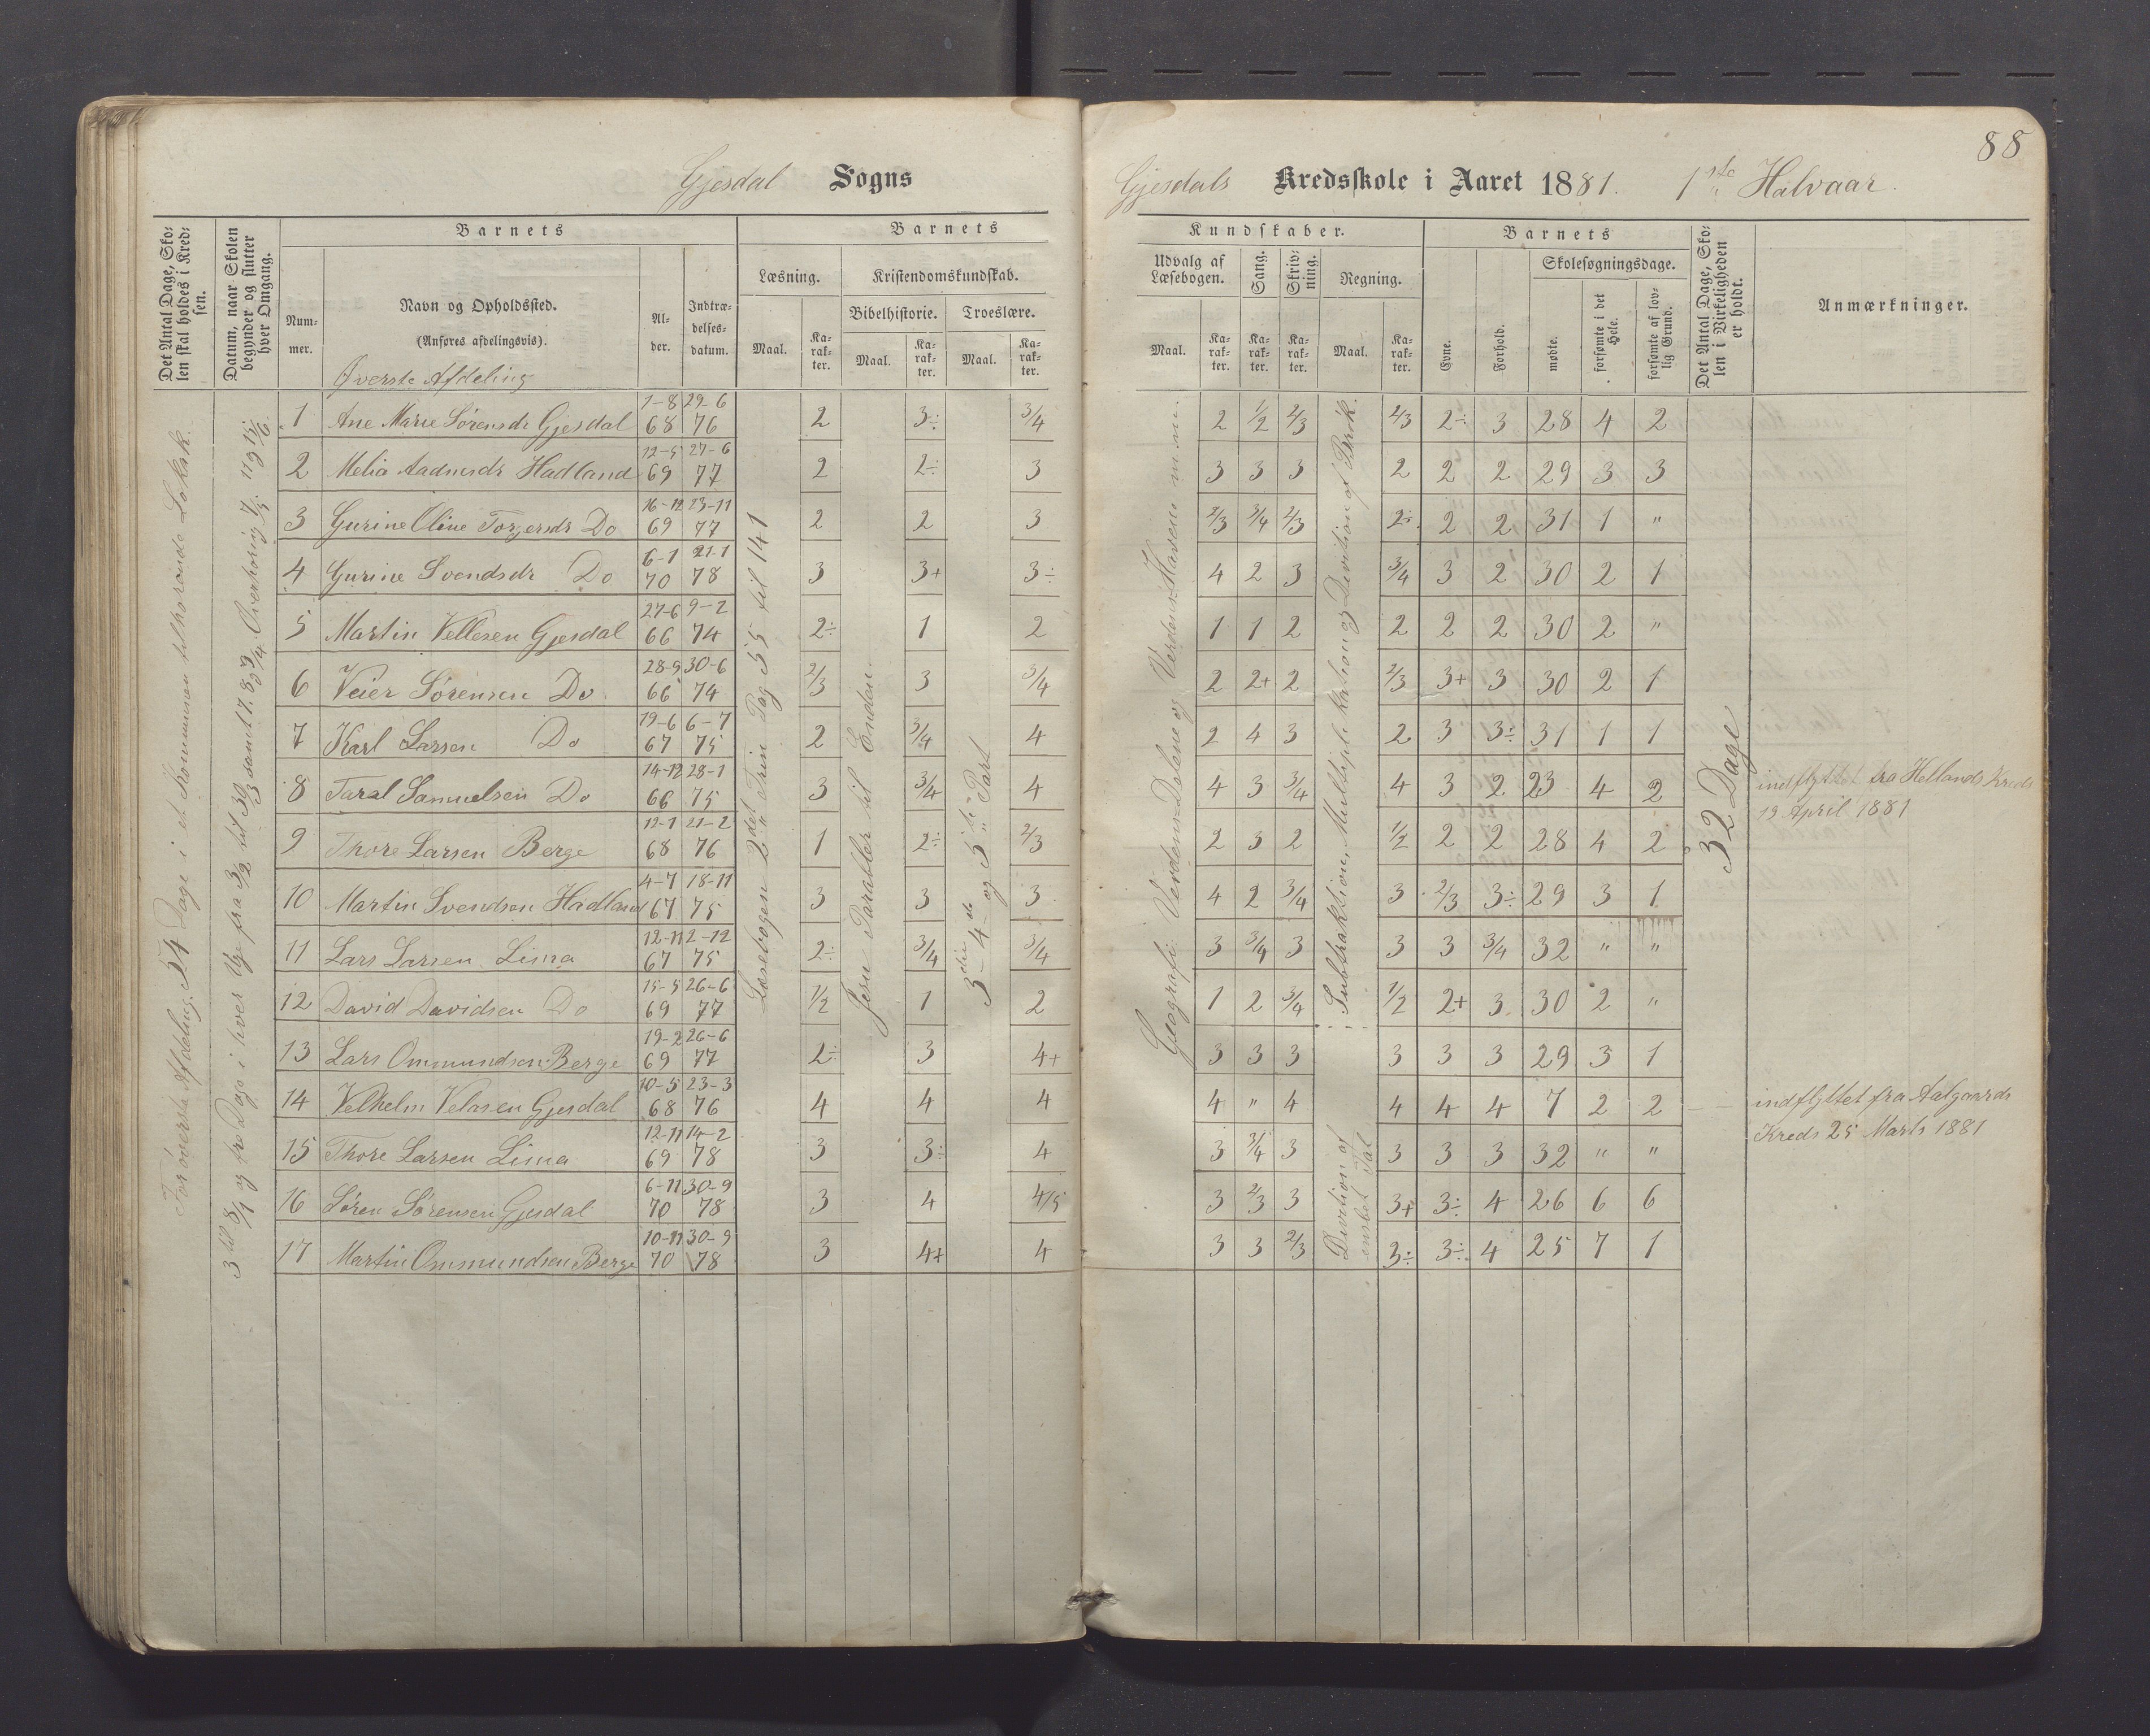 88
Gjesdal Sogns Gjesdals Kredsskole i Aaret 1881. 1ste Halvaar.
Det Antal Dage, Skolen skal holdes i Kredsen.
Datum, naar Skolen begynder og slutter hver Omgang.
Barnets
Nummer.
Navn og Opholdssted.
(Anføres afdelingsvis).
Alder.
Indtrædelsesdatum.
Barnets
Læsning.
Maal.
Karakter.
Kristendomskundskab.
Bibelhistorie.
Maal.
Karakter.
Troeslære.
Maal.
Karakter.
Kundskaber.
Udvalg af Læsebogen.
Maal.
Karakter.
Sang.
Karakter.
Skrivning.
Karakter.
Regning.
Maal.
Karakter.
Barnets
Evne.
Forhold.
Skolesøgningsdage.
mødte.
forsømte i det Hele.
forsømte af lovlig Grund.
Det Antal Dage, Skolen i Virkeligheden er holdt.
Anmærkninger.
Øverste Afdeling
For øverste Afdeling. 54 Dage i et Kommunen tilhørende Lokale.
3 til 8/1 og fra Dage i hver Uge fra 3/2 til 30/3 samt 7. 8 og 9/4. Overhøring 7/5.
Læsebogen 2det Trin Pag 55 til 141
Jesu Parabler til Enden.
3die 4de og 5te Part
Geografi: Verdens-Delene og Verdens-Havene m.m.
Subtraktion, Multiplikation og Divition af Brøk.
Divition af enslet Tal
32 Dage
1 Ane Marie Sørensdr Gjesdal 1-8 68 29-6 76 2 3÷ 3/4 2 1/2 2/3 2/3 2÷ 3 28 4 2
2 Melia Aadnesdr Hadland 12-5 69 27-6 77 2 2÷ 3 3 3 3 2 2 2 29 3 3
3 Gurine Oline Torgersdr Do 16-12 69 23-11 77 2 2 3 2/3 3/4 2/3 2÷ 2 2 31 1 "
4 Gurine Svendsdr Do 6-1 70 21-1 78 3 3+ 3÷ 4 2 3 3/4 3 2 30 2 1
5 Martin Vellesen Gjesdal 27-6 66 9-2 74 2÷ 1 2 1 1 2 2 2 2 30 2 "
6 Veier Sørensen Do 28-9 66 30-6 74 2/3 3 3/4 2 2+ 2 2/3 3+ 3 30 2 1
7 Karl Larsen Do 19-6 67 6-7 75 2 3/4 4 2 4 3 2 3 3÷ 31 1 1
8 Taral Samuelsen Do 14-12 66 28-1 75 3 3/4 4 4 3 3/4 4 3 2 23 4 2 indflyttet fra Hellands Kreds
19 April 1881
9 Thore Larsen Berge 12-1 68 21-2 76 1 2÷ 2/3 2 3 2 1/2 2 2 28 4 2
10 Martin Svendsen Hadland 4-7 67 18-11 75 3 3 3 4 2 3/4 3 2/3 3÷ 29 3 1
11 Lars Larsen Lima 12-11 67 2-12 75 2÷ 3/4 3/4 3 3/4 3 3 3 3/4 32 " "
12 David Davidsen Do 15-5 69 26-6 77 1/2 1 2 1 2 3/4 1/2 2+ 3 30 2 "
13 Lars Ommundsen Berge 19-2 69 26-6 77 2÷ 3 4+ 3 3 3 3 3 3 29 3 1
14 Velhelm Velasen Gjesdal 10-5 68 23-3 76 4 4 4 4 " 4 4 4 4 7 2 2 indflyttet fra Aalgaards
Kreds 25 Marts 1881
15 Thore Larsen Lima 12-11 69 14-2 78 3 3÷ 4 3 3/4 3 3 3 3 32 " "
16 Søren Sørensen Gjesdal 6-11 70 30-9 78 3 4 4/5 3 2/3 3 3+ 3÷ 4 26 6 6
17 Martin Ommundsen Berge 10-11 70 30-9 78 3 4+ 4 3 3 2/3 3÷ 3÷ 4 25 7 1